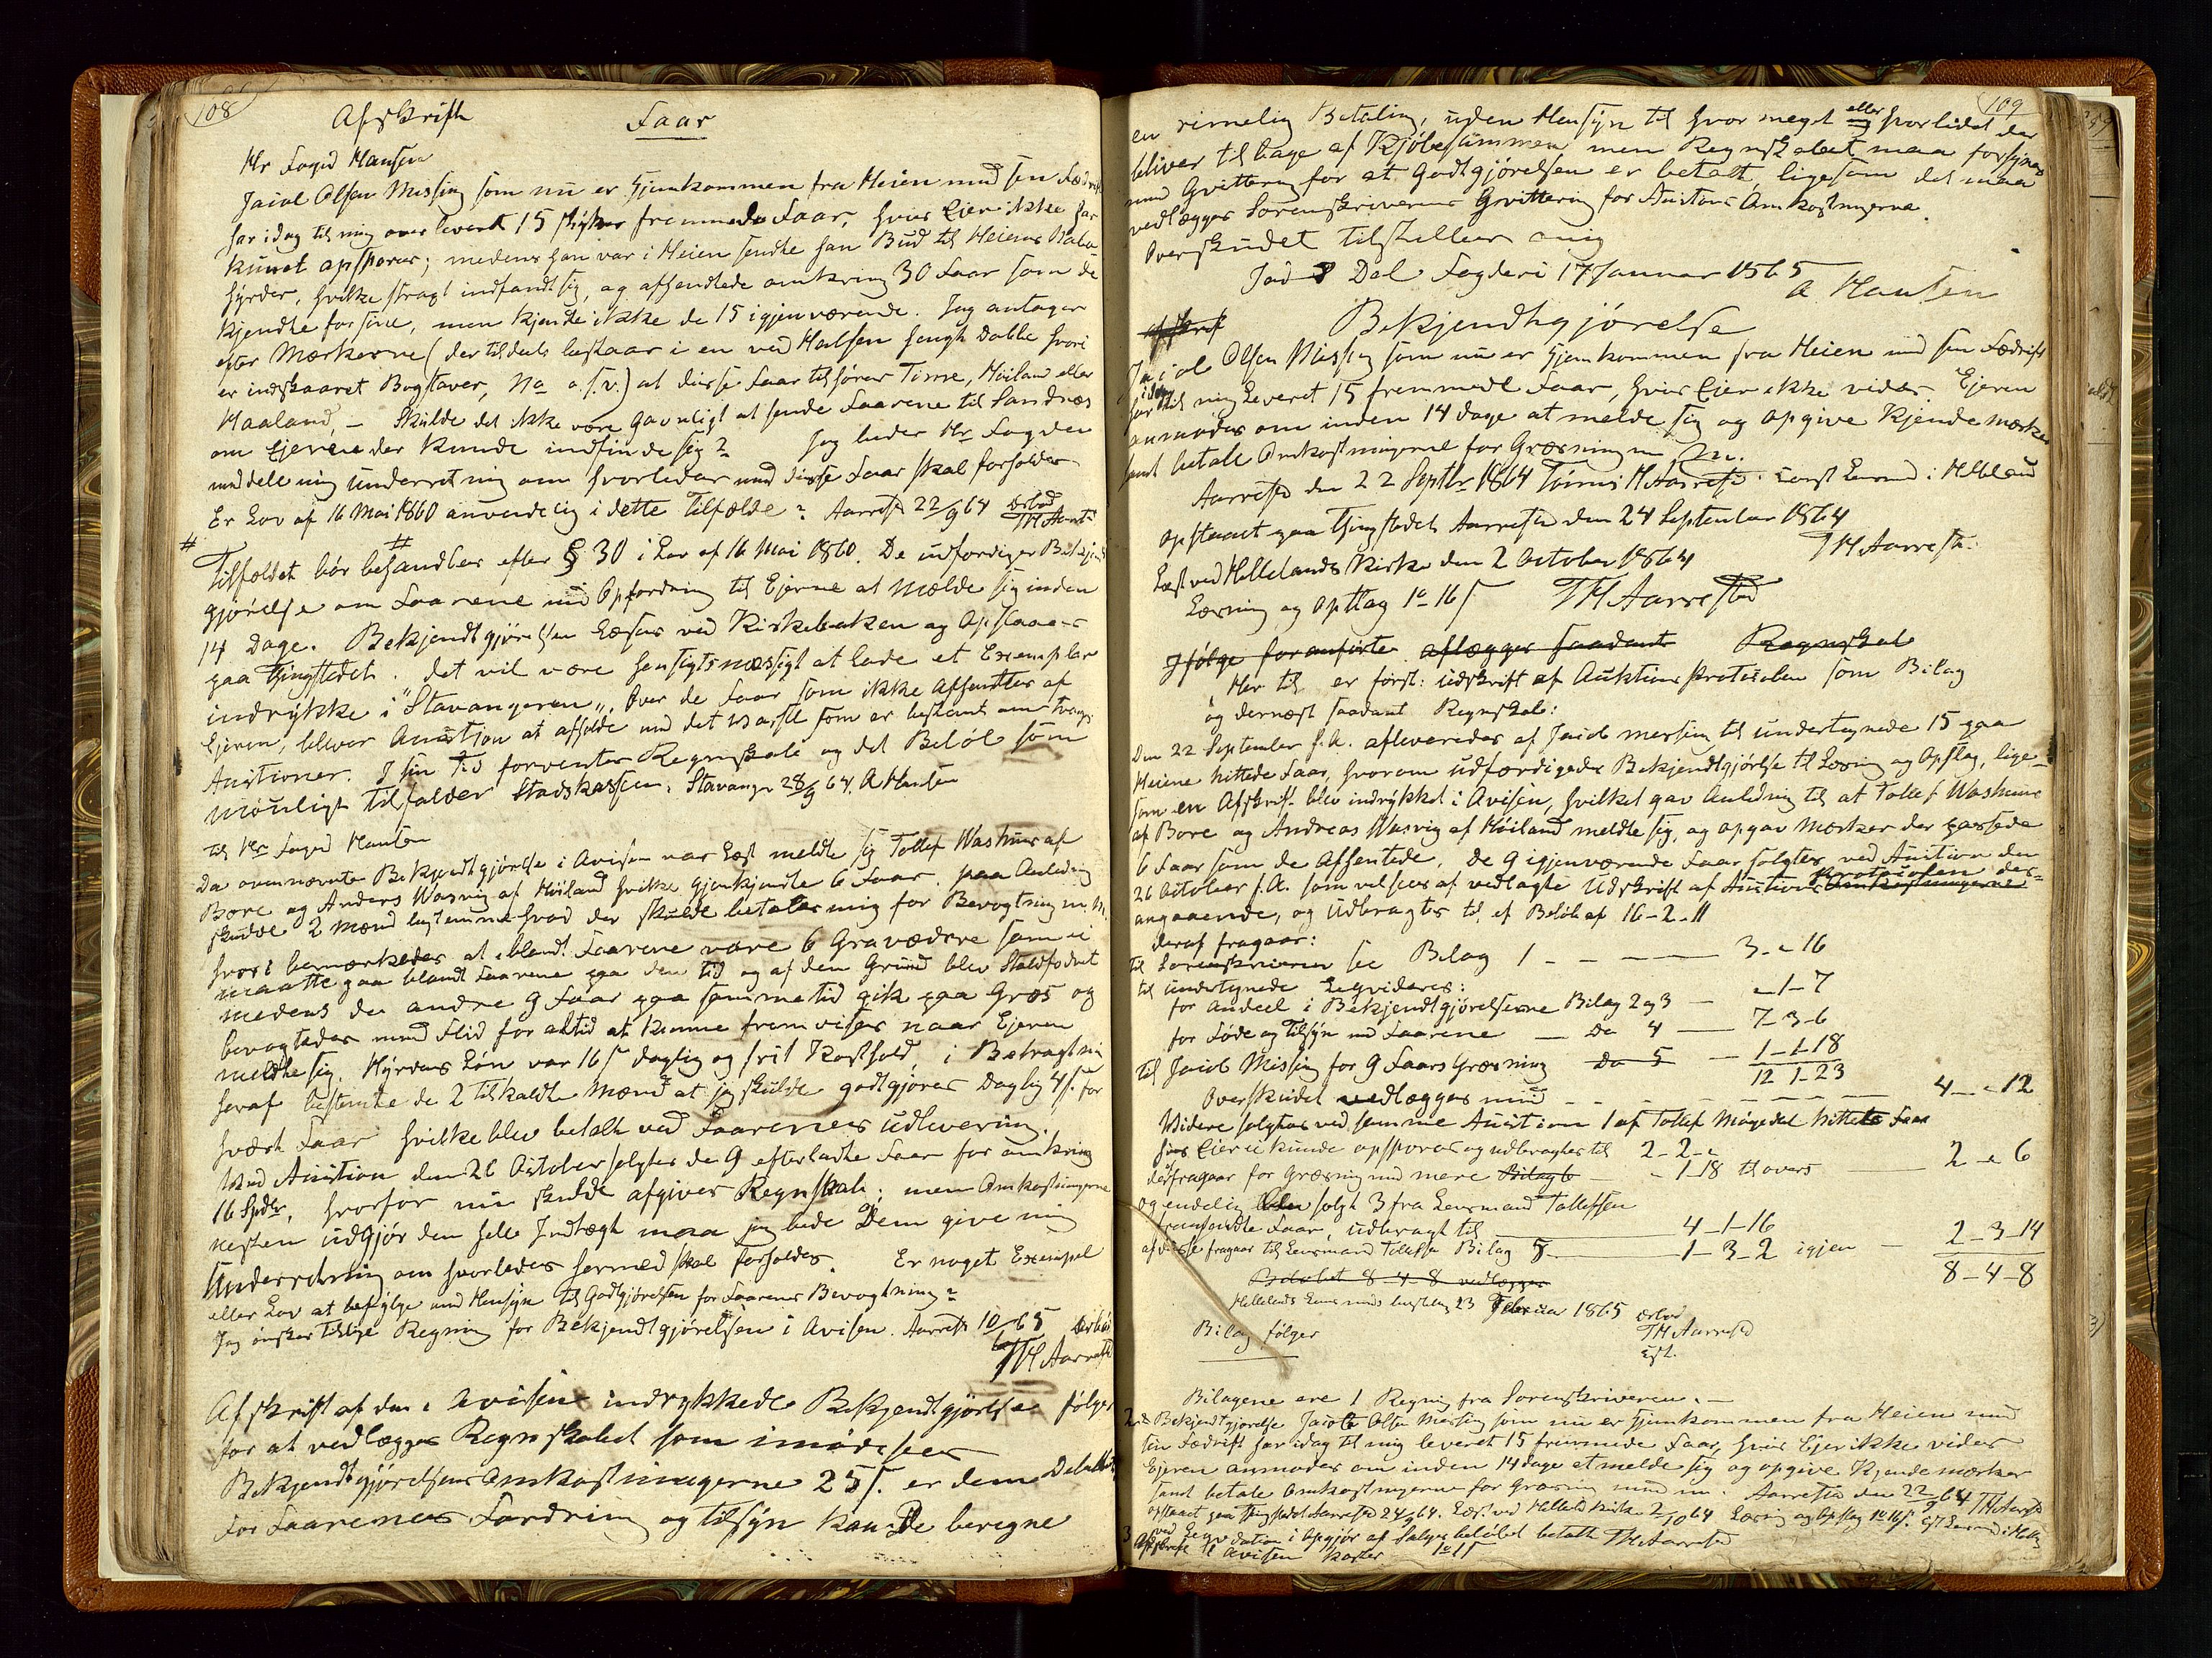 108
Afskrift Faar
Hr Foged Hansen
Jacob Olsen Messing som nu er hjemkommen fra Heien med sin Fædrift
har idag til mig overleveret 15 stykker fremmede Faar, hvis Eier ikke har
kunnet opspores; medens han var i Heien sendte han Bud til Heiens
hyrder, hvilke strax indfandt sig, og afhendtede omkring 30 Faar som de
kjendte for sine, men kjendte ikke de 15 igjenværende. Jeg antager
efter Mærkerne (der tildeels bestaar i en ved Halsen hengt Dobbe hvori
er indskaaret Bogstaver, No o.s.v.) at disse Faar tilhører Time, Höiland eller
Haaland, — Skulde det ikke være gavnligt at sende Faarene til Sandnæs
om Ejerene der kunde indfinde sig? Jeg beder Hr Fogden
meddele mig underretning om hvorledes med disse Faar skal forholdes
Er Lov af 16 Mai 1860 anvendelig i dette Tilfælde? Aarrestd 22/9 64 ærbød
TH Aarrest
# Tilfældet bör behandles efter § 30 i Lov af 16 Mai 1860. De udfærdiger Bekjendt
gjörelse om Faarene med Opfordring til Ejerne at melde sig inden
14 Dage. Bekjendtgjörelsen læses ved Kirkebakken og Opslaaes
paa Thingstedet. Det vil være hensigtsmæssigt at lade et Exemplar
indrykke i "Stavangeren". Over de Faar som ikke afhendtes af
Ejeren, bliver Auction at afholde med det Varsel som er bestemt om Tvangs
Auctioner. I sin Tid forventes Regnskab og det Belöb som
mueligt tilfalder Stadskassen. Stavanger 28/9 64. A Hansen
Til Hr Foged Hansen
Da ovennævnte Bekjendtgjörelse i Avisen var Læst meldte sig Tollef Washuus af
Bore og Anders Wasvig af Höiland hvilke gjenkjendte 6 Faar. paa Anledning
skulde 2 Mænd bestemme hvad der skulde betales mig for Bevogtning m.M.
hvori bemærkedes at iblandt Faarene vare 6 Gravædere som ei
maatte gaa blandt Faarene paa den tid og af den Grund blev Staldfodret
medens de andre 9 Faar paa samme tid gik paa Græs og
bevogtedes med Flid for altid at kunne fremvises naar Ejeren
meldte sig. Hyrdens Lön var 16 s daglig og frit Kosthold, i Betragtning
heraf bestemte de 2 tilkaldte Mænd at jeg skulde godtgjöres Daglig 4 s. for
hvært Faar hvilke blev betalt ved Faarenes udlevering.
Ved Auction den 26 October solgtes de 9 efterladte Faar for omkring
16 Spdlr, hvorfor nu skulde afgives Regnskab; men Omkostningerne
nesten udgjör den hele Indtægt maa jeg bede Dem give mig
Underretning om hvorledes hermed skal forholdes. Er noget Exempel
eller Lov at befölge med Hensyn til Godtgjörelsen for Faarenes Bevogtning?
Jeg önsker tillige Regning for Bekjendtgjörelsen i Avisen. Aarrestd 10/1 65 ærböd
TH Aarrestd
Afskrift af den i Avisen indrykkede Bekjendtgjörelse fölger
for at vedlægges Regnskabet som imödesees
Bekjendtgjörelsens Omkostningerne 25 s. er denne Debiteret
For Faarenes Fordring og tilsyn kan De beregne
109
en rimelig Betaling, uden Hensyn til hvor meget eller hvor lidet der
bliver tilbage af Kjöbesummen men Regnskabet maa forsynes
med Qvittering for at Godtgjörelsen er betalt, ligesom det maa
vedlægges Sorenskriverens Qvittering for Auctions Omkostningerne.
Overskudet tilstilles mig
Jæd & Dal. Fogderi 17 Januar 1865
A Hansen
Bekjendtgjörelse
Jacob Olsen Missing som nu er hjemkommen fra Heien med sin Fædrift
har idag til mig Leveret 15 fremmede Faar, hvis Eier ikke vides. Ejeren
anmodes om inden 14 Dage at melde sig og opgive Kjendemærker
samt betale Omkostningerne for Græsning m.m.
Aarrestd den 22 Septbr 1864 Tönnes H Aarrestd. Const Lensmd i Helland
Opslaaet paa Thingstedet Aarrestd den 24 September 1864
TH Aarrestd.
Læst ved Hellelands Kirke den 2 October 1864
Læsning og Opslag 1 o 16 s TH Aarrestad
Ifölge foranförte aflægges saadant Regnskab
Her til er först: udskrift af Auktions Protocolen som Bilag
og dernæst saadant Regnskab:
Den 22 September f.A. afleveredes af Jacob messing til undertegnede 15 paa
Heiene hittede Faar, hvorom udfærdigedes Bekjendtgjörelse til Læsning og Opslag, lige-
som en Afskrift blev indrykket i Avisen, hvilket gav Anledning til at Tollef Washuus
af Bore og Andreas Wasvig af Höiland meldte sig, og opgav Mærker der passede
6 Faar som de Afhentede. De 9 igjenværende Faar solgtes ved Auction den
26 October f.A. som vil sees af vedlagte Udskrift af Auctions Protocolen des-
angaaende, og udbragtes til et Belöb af 16-2-11
deraf fragaar:
til Sorenskriveren see Bilag 1 - - - 3 - " 16
til undertegnede Legvideres:
for Andeel i Bekjendtgjörelserne Bilag 2 og 3 — " - 1 - 7
for Föde og Tilsyn med Faarene — Do 4 — 7-3-6
til Jacob Missing for 9 Faars Græsning Do 5 — 1-1-18
12 1-23
Overskudet vedlægges med - - - 4 - " 12
Videre solgtes ved samme Auction 1 af Tollef Mögedal hittet Faar
hvis Eier ei kunde opspores og udbragtes til 2-2-"
derfragaar for Græsning med mere Bilag 6 — " 1-18 til overs — 2 - " 6
og endelig blev solgt 3 fra Lensmand Tollefsen
fremsendte Faar, udbragt til 4-1-16
af disse fragaar til Lensmand Tollefsen Bilag 5 — 1-3-2 igjen — 2-3-14
8-4-8
Belöbet 8-4-8 vedlægges
Hellelands Lensmands bestilling 23 Februar 1865 ærbød
TH Aarrestd
Bilag fölger cst.
Bilagene ere 1 Regning fra Sorenskriveren. —
2 Bekjendtgjörelse Jacob Olsen Messing som nu er hjemkommen fra Heien med
sin Fædrift har idag til mig leveret 15 fremmede Faar, hvis Ejer ikke vides
Ejeren anmodes om inden 14 dage at melde sig og opgive Kjendemærker
samt betale Omkostningerne for Græsning med m. Aarrestd den 22/9 64 TH Aarrestd
opslaaet paa Thingstedet Aarrestad 24/9 64. Læst ved Helleland Kirke 2/10 64 Læsning og Opslag 1 o 16 s. cst Lensmd i Hell
ved Leqvidation i Opgjör af Salgsbelöbet betalt TH Aarrestd
3 Afskrift til Avisen koster 1 o 1 s